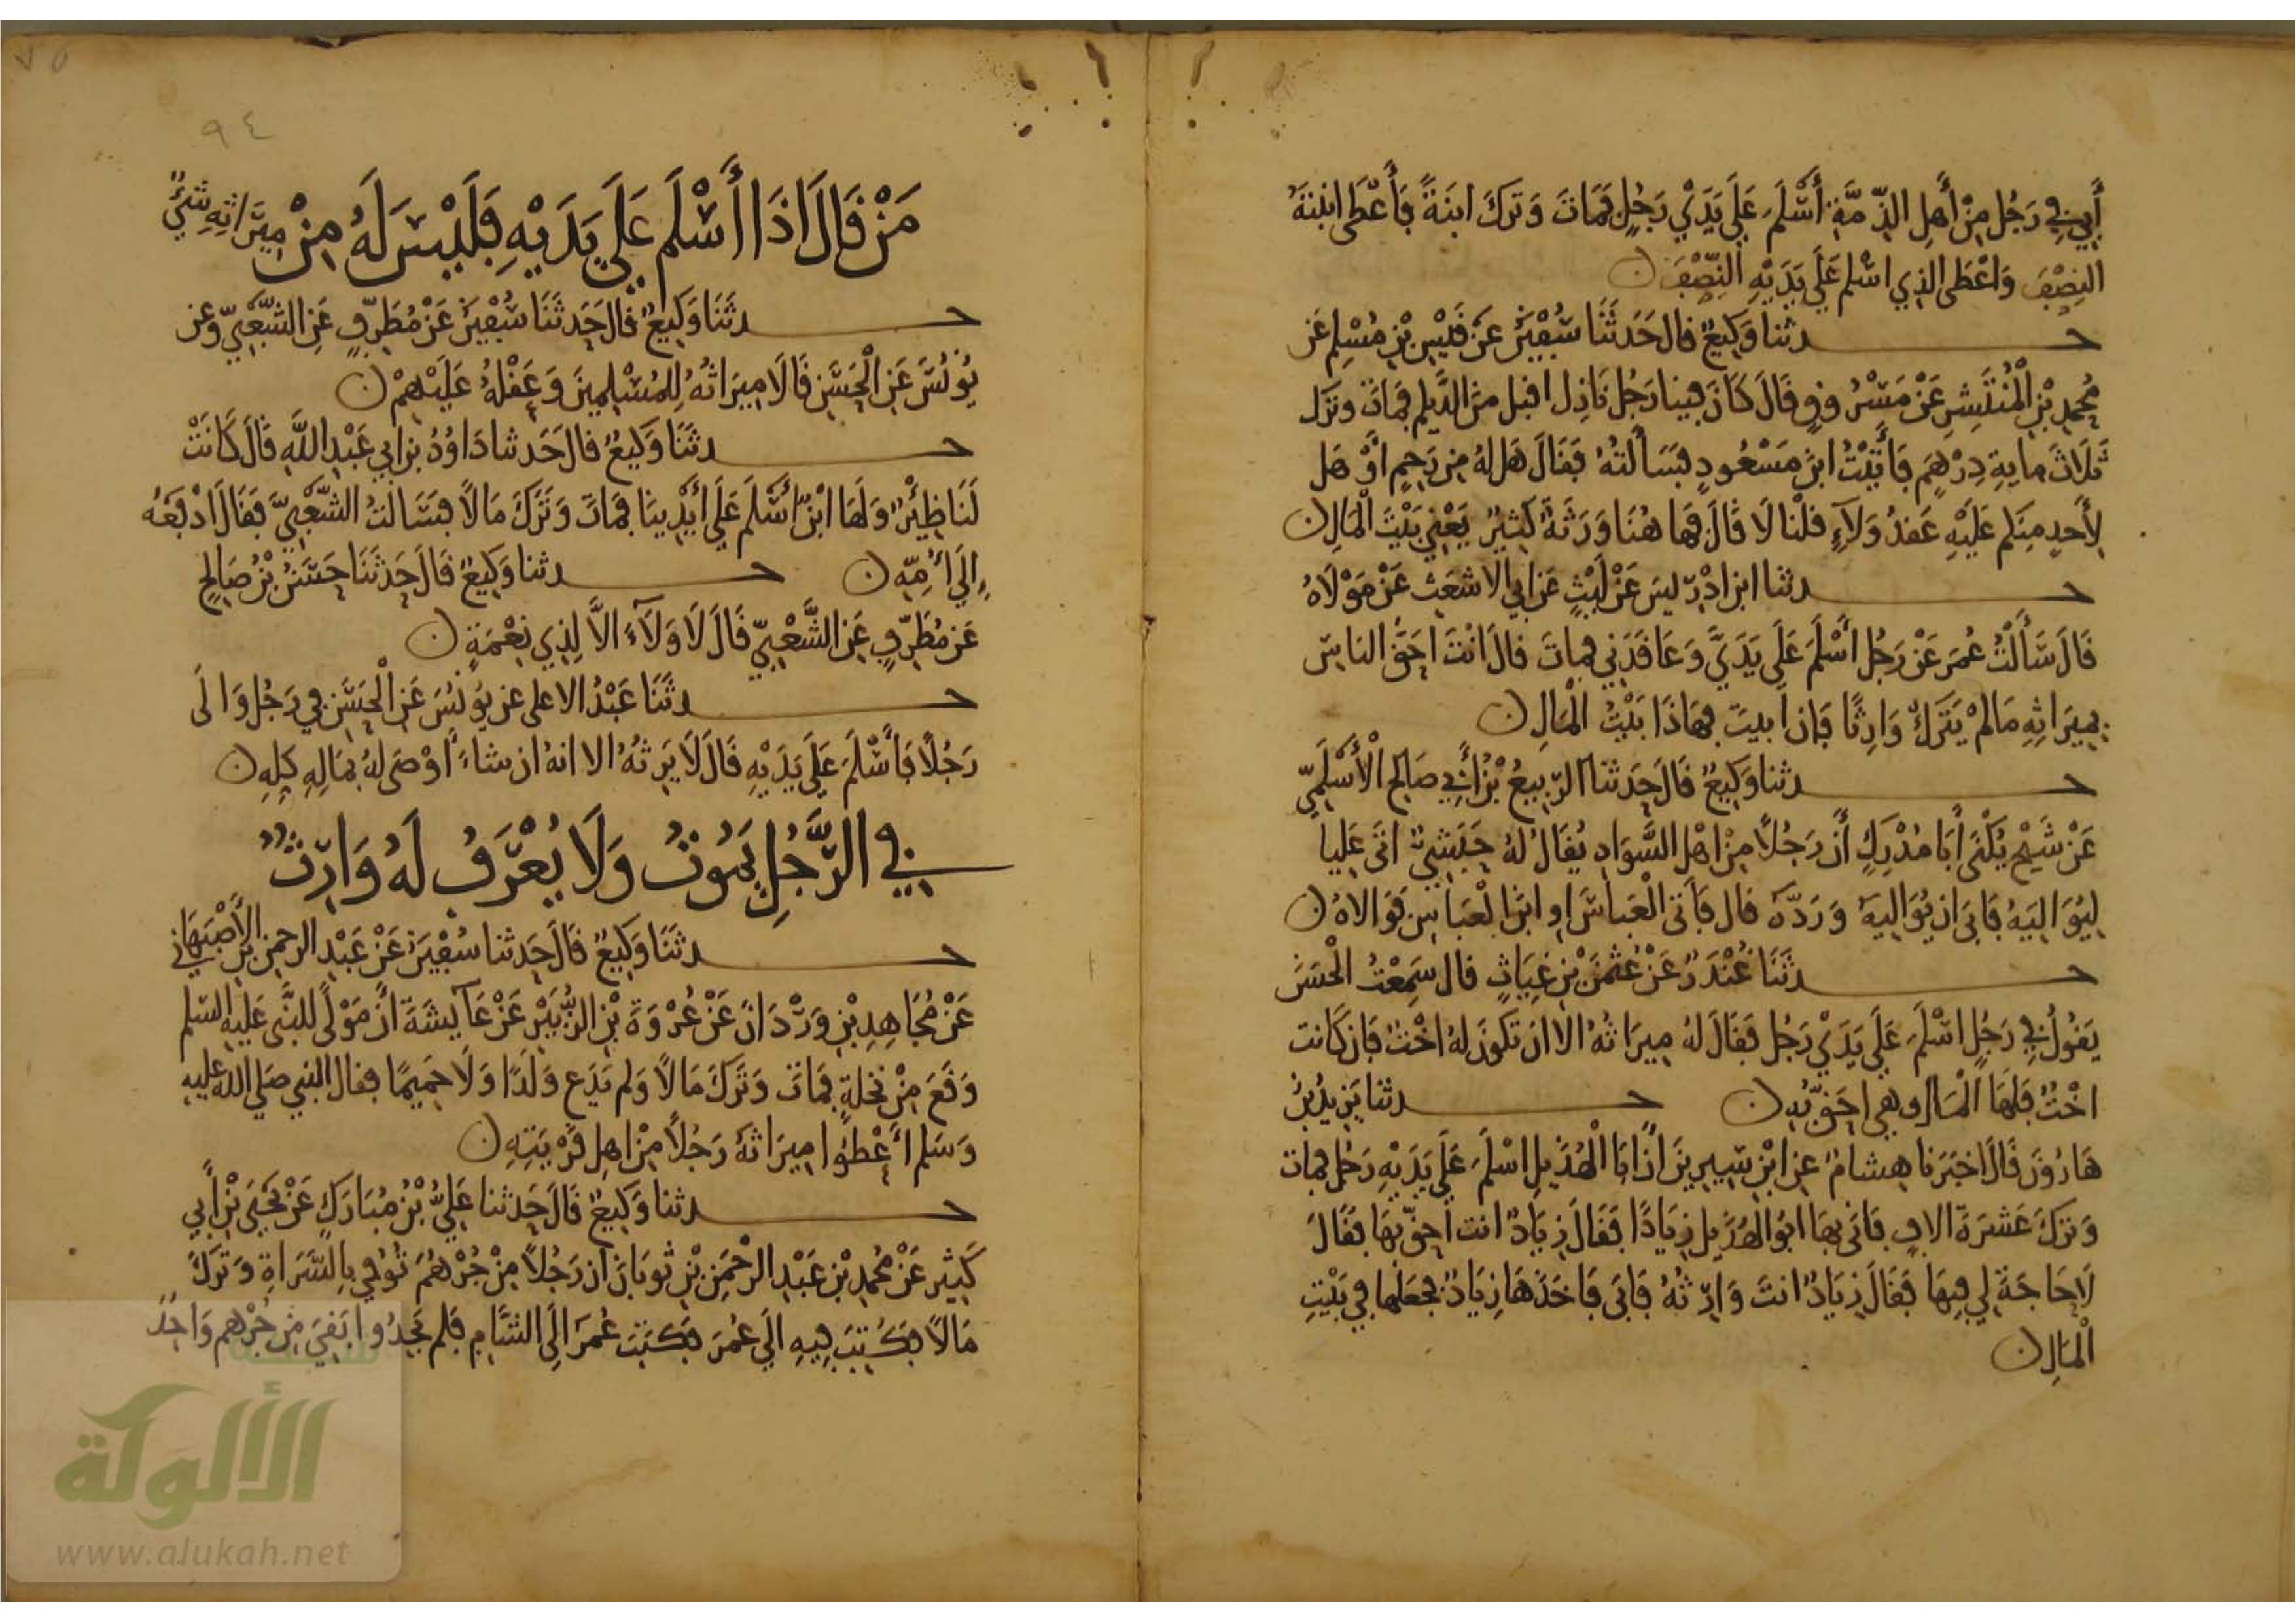 أَبِي فِي رَجُلٍ مِنْ أَهلِ الذِّمَّةِ أَسْلَمَ عَلَى يَدَيْ رَجُلٍ فَمَاتَ وَتَرَكَ ابنَةً فَأَعْطَى ابنتَهُ
النِّصْفَ وَاعْطَى الذِي اسْلم عَلَى يَدَيْهِ النِّصْفَ ن
حدثنا وَكِيعٌ قال حَدَثَنَا سُفْيَنُ عَنْ قَيْسِ بْنِ مُسْلِمٍ عَن
مُحمدِ بْنِ الْمُنْتَشِرِ عَنْ مَسْرُوقٍ قَالَ كَانَ فينا رَجُل نَازِل اقبل من الدَّيلم فمَات وترَك
ثَلَاثَ مايةِ دِرْهَمٍ فَأَتَيْتُ ابنَ مَسْعُودٍ فسَأَلتُهُ فقَالَ هَل لهُ من رَحِمٍ اوْ هَل
لِأَحدٍ مِنكم عَلَيْهِ عَقدُ وَلَآءٍ قلْنا لَا قَالَ فَها هُنَا وَرَثَةٌ كَثِيرٌ يَعْنِي بَيْتَ المَالِ ن
حدثنا ابن ادْرِيسَ عَنْ لَيْثٍ عَن ابي الاشعَث عَنْ مَوْلَاهُ
قَالَ سَأَلْتُ عُمَرَ عَنْ رَجُلٍ أَسْلَمَ عَلَى يَدَيَّ وَعَاقَدَنِي فمات قالَ انْتَ احَقُّ الناسِ
بِمِيرَاثِهِ مَا لمْ يَتْرَكْ وَارِثًا فَإن ابيتَ فهَاذَا بَيْتُ الْمَالِ ن
حدثنا وَكِيعٌ قَالَ حَدَثنا الرّبِيعُ بْنُ أَبِي صَالح الْأَسْلَمِيّ
عَنْ شَيْخٍ يُكْنَى أَبَا مُدْرِكٍ أَن رَجُلاً مِنْ اهْل السَّوَادِ يُقَالُ لهُ حَبَشِيٌّ اتَى عَلِيا
لِيُوَالِيَهُ فَابَى ان يُوَاليهُ وَرَدَّهُ قال فَأتى الْعَباسَ اوِ ابنَ الْعَباسِ فَوَالاهُ ن
حدثَنَا غُنْدَرٌ عَنْ عُثمَنَ بْنِ غِيَاثٍ قال سَمِعْتُ الْحَسَنَ
يَقُولُ فِي رَجُلٍ اسْلَمَ عَلَى يَدَيْ رَجُلٍ فَقَالَ لهُ مِيرَاثُهُ الا ان تَكونَ لهُ اخْتٌ فَإن كَانت
اخْتٌ فَلهَا الْمَال وهي احَقُّ بِهِ ن حدثنا يَزِيدُ بْنُ
هَارُونَ قَالَ اخبَرَنا هِشَامٌ عن ابْنِ سِيرِينَ انَّ ابَا الْهُذَيلِ اسْلَمَ عَلَى يَدَيْهِ رَجُل فمات
وَترَكَ عَشرَةَ الافٍ فَاتى بِهَا ابُو الْهُذَيلِ زِيَادًا فقَالَ زِيَادٌ انت احقّ بهَا فقَالَ
لَا حَاجَةَ لِي فِيهَا فقَالَ زِيَادٌ انتَ وَارِثُهُ فَابَى فَاخَذهَا زِيَادٌ فجَعَلهَا فِي بَيْتِ
الْمَالِ ن
٩٤
مَنْ قَالَ اذَا أَسْلَم عَلَى يَدَيْهِ فَلَيْسَ لَهُ مِنْ مِيرَاثِهِ شَيْءٌ
حدثَنَا وَكِيعٌ قالَ حَدثَنَا سُفْيَنُ عَنْ مُطَرِّفٍ عَنِ الشَّعْبِيّ وَعن
يُونُسَ عَنِ الْحَسَنِ قَالَا مِيرَاثُهُ لِلمُسْلِمِينَ وَعَقْلُهُ عَلَيْهِمْ ن
حدثَنَا وَكِيعٌ قالَ حَدثنا دَاوُدُ بن ابي عَبْدِ اللَّهِ قَالَ كَانَتْ
لَنَا ظِئْرٌ وَلَهَا ابْنٌ أَسْلَمَ عَلَى أَيْدِينَا فَمَاتَ وَتَرَكَ مَالاً فسَالتُ الشَّعْبِيَّ فقَالَ ادْفَعْهُ
إِلَى أُمِّهِ ن حدثنا وَكِيعٌ قَالَ حَدَثَنَا حَسَنُ بْنُ صَالِحٍ
عَن مُطَرِّفٍ عَنِ الشَّعْبِيّ قَالَ لَا وَلَآءَ الاَّ لِذِي نِعْمَةٍ ن
حدثَنَا عَبْدُ الاعلى عن يُونُسَ عَنِ الْحَسَنِ فِي رَجُلٍ وَالَى
رَجُلاً فَأَسْلَمَ عَلَى يَدَيْهِ قَالَ لَا يَرِثُهُ الا انهُ ان شاءَ اوْصَى لهُ بمَالِهِ كُلِهِ ن
فِي الرَّجُلِ يَمُوتُ وَلَا يُعْرَفُ لَهُ وَارِثٌ
حدثَنَا وَكِيعٌ قَالَ حَدثنا سُفْيَنُ عَنْ عَبْدِ الرحمن بْنِ الأَصْبَهَانِي
عَنْ مُجَاهِدِ بْنِ وَرْدَانَ عَنْ عُرْوَةَ بْنِ الزُّبَيْرِ عَنْ عَآيِشَةَ انَّ مَوْلًى للنَّبي عَلَيهِ السّلم
وَقَعَ مِنْ نخلةٍ فمَاتَ وَتَرَكَ مَالاً وَلم يَدَع وَلَدًا وَلَا حَمِيمًا فقال النبي صَلى الله عليهِ
وَسَلم أَعْطُوا مِيرَاثَهُ رَجُلاً مِنْ اهلِ قَرْيَتِهِ ن
حدثنا وَكِيعٌ قَالَ حَدثنا عَلِيُّ بْنُ مُبَارَكٍ عَنْ يَحْيَى بْنِ أَبِي
كَثِيرٍ عَنْ مُحمدِ بْنِ عَبْدِ الرحْمَنِ بْنِ ثَوبَانَ ان رَجُلاً مِنْ جُرْهُمَ تُوُفِي بِالسَّرَاةِ وَتَرَكَ
مَالاً فكُتِبَ فِيهِ الَى عُمَرَ فكتَبَ عُمَرُ الَى الشَّامِ فَلم يَجِدُوا بَقِيَ من جُرْهم وَاحِدٌ
الألوكة
www.alukah.net